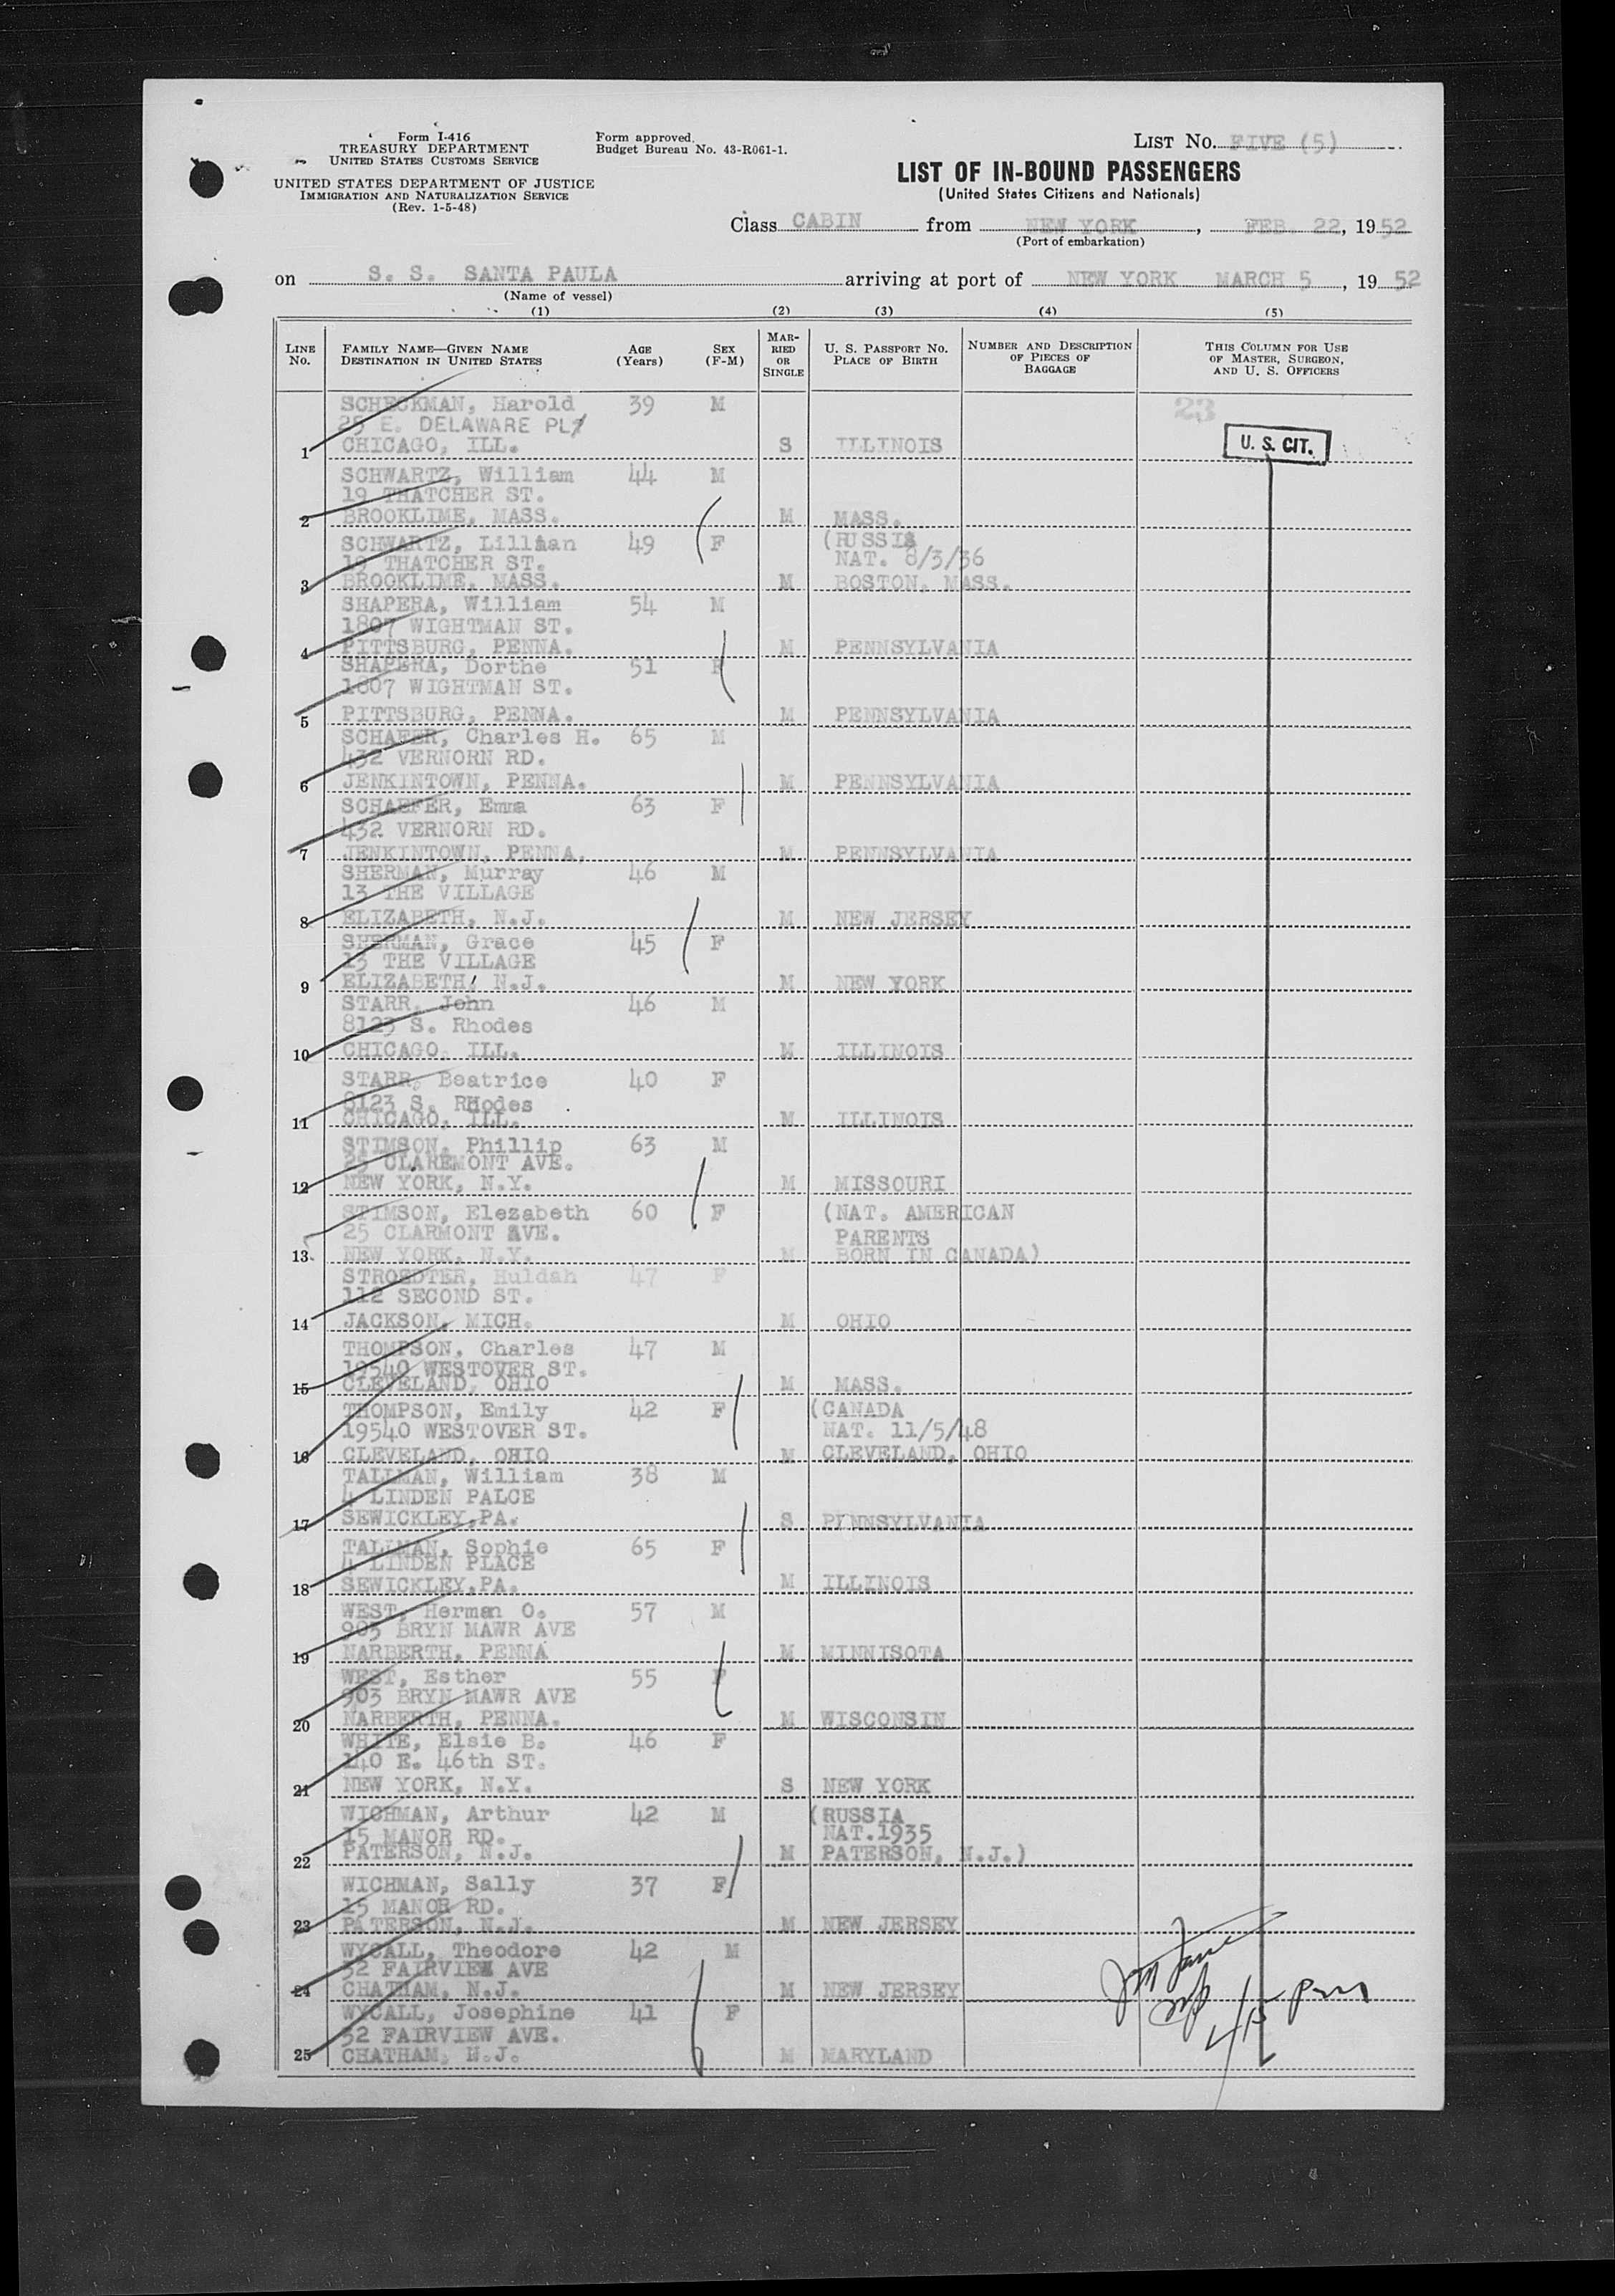 Form I-416
TREASURY DEPARTMENT
UNITED STATES CUSTOMS SERVICE
UNITED STATES DEPARTMENT OF JUSTICE
IMMIGRATION AND NATURALIZATION SERVICE
(Rev. 1-5-48)
Form approved.
Budget Bureau No. 43-R061-1.
LIST No. FIVE (5)
LIST OF IN-BOUND PASSENGERS
(United States Citizens and Nationals)
Class CABIN from NEW YORK, FEB. 22, 1952
(Port of embarkation)
on S. S. SANTA PAULA arriving at port of NEW YORK MARCH 5, 1952
(Name of vessel)
(1) (2) (3) (4) (5)
LINE No. FAMILY NAME—GIVEN NAME DESTINATION IN UNITED STATES AGE (Years) SEX (F-M) MARRIED OR SINGLE U. S. PASSPORT No. PLACE OF BIRTH NUMBER AND DESCRIPTION OF PIECES OF BAGGAGE THIS COLUMN FOR USE OF MASTER, SURGEON, AND U. S. OFFICERS
SCHECKMAN, Harold 39 M 23
25 E. DELAWARE PL
1 CHICAGO, ILL. S ILLINOIS U. S. CIT.
SCHWARTZ, William 44 M
19 THATCHER ST.
2 BROOKLIME, MASS. M MASS.
SCHWARTZ, Lillian 49 F (RUSSIA
19 THATCHER ST. NAT. 8/3/36
3 BROOKLIME, MASS. M BOSTON, MASS.
SHAPERA, William 54 M
1807 WIGHTMAN ST.
4 PITTSBURG, PENNA. M PENNSYLVANIA
SHAPERA, Dorthe 51 F
1807 WIGHTMAN ST.
5 PITTSBURG, PENNA. M PENNSYLVANIA
SCHAFER, Charles H. 65 M
432 VERNORN RD.
6 JENKINTOWN, PENNA. M PENNSYLVANIA
SCHAEFER, Emma 63 F
432 VERNORN RD.
7 JENKINTOWN, PENNA. M PENNSYLVANIA
SHERMAN, Murray 46 M
13 THE VILLAGE
8 ELIZABETH, N.J. M NEW JERSEY
SHERMAN, Grace 45 F
13 THE VILLAGE
9 ELIZABETH, N.J. M NEW YORK
STARR, John 46 M
8123 S. Rhodes
10 CHICAGO, ILL. M ILLINOIS
STARR, Beatrice 40 F
8123 S. RHodes
11 CHICAGO, ILL. M ILLINOIS
STIMSON, Phillip 63 M
25 CLAREMONT AVE.
12 NEW YORK, N.Y. M MISSOURI
STIMSON, Elezabeth 60 F (NAT. AMERICAN
25 CLARMONT AVE. PARENTS
13 NEW YORK, N.Y. M BORN IN CANADA)
STROEDTER, Huldah 47 F
112 SECOND ST.
14 JACKSON, MICH. M OHIO
THOMPSON, Charles 47 M
19540 WESTOVER ST.
15 CLEVELAND, OHIO M MASS.
THOMPSON, Emily 42 F (CANADA
19540 WESTOVER ST. NAT. 11/5/48
16 CLEVELAND, OHIO M CLEVELAND, OHIO
TALLMAN, William 38 M
4 LINDEN PALCE
17 SEWICKLEY,PA. S PENNSYLVANIA
TALLMAN, Sophie 65 F
4 LINDEN PLACE
18 SEWICKLEY,PA. M ILLINOIS
WEST, Herman O. 57 M
903 BRYN MAWR AVE
19 NARBERTH, PENNA M MINNISOTA
WEST, Esther 55 F
903 BRYN MAWR AVE
20 NARBERTH, PENNA. M WISCONSIN
WHITE, Elsie B. 46 F
140 E. 46th ST.
21 NEW YORK, N.Y. S NEW YORK
WICHMAN, Arthur 42 M (RUSSIA
15 MANOR RD. NAT.1935
22 PATERSON, N.J. M PATERSON, N.J.)
WICHMAN, Sally 37 F
15 MANOR RD.
23 PATERSON, N.J. M NEW JERSEY
WYCALL, Theodore 42 M
52 FAIRVIEW AVE
24 CHATHAM, N.J. M NEW JERSEY
WYCALL, Josephine 41 F
52 FAIRVIEW AVE.
25 CHATHAM, N.J. M MARYLAND